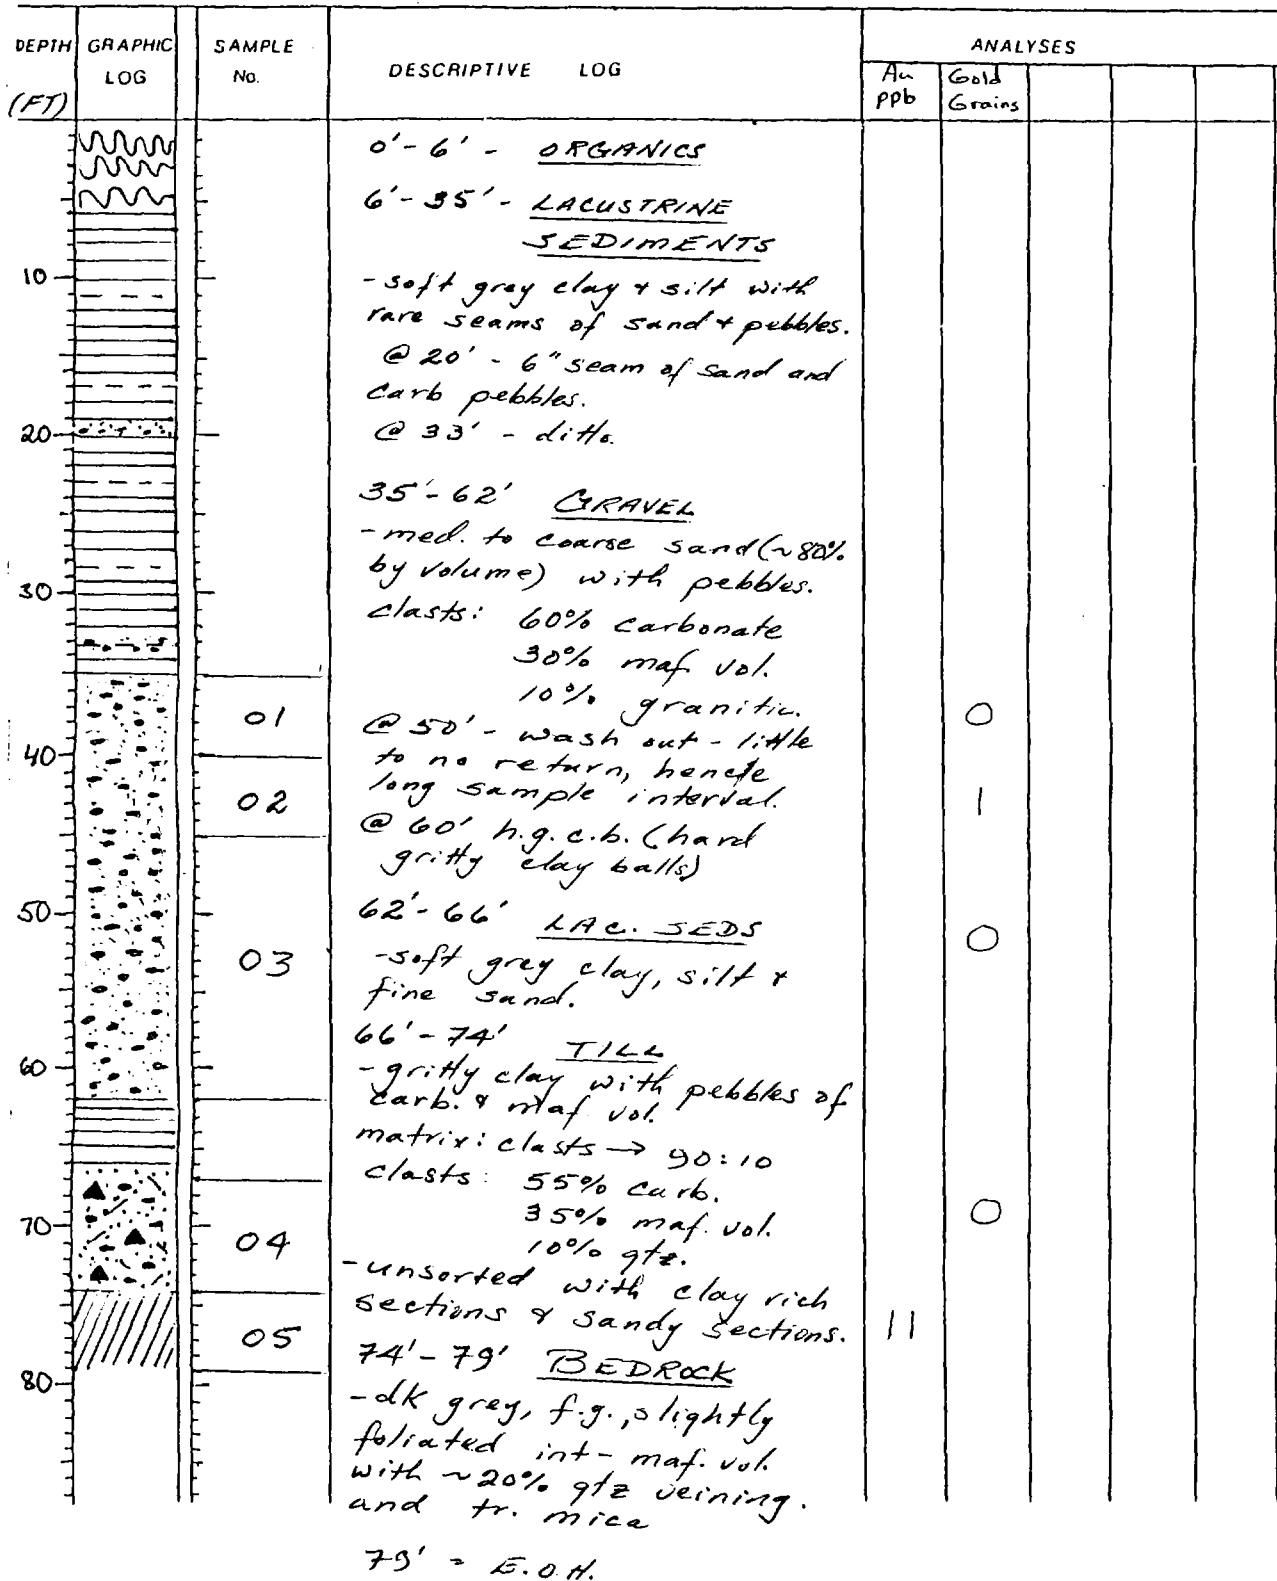 DEPTH GRAPHIC SAMPLE DESCRIPTIVE LOG ANALYSES
LOG No.
(FT)
Au Gold
ppb Grains
0'-6' - ORGANICS
6'-35' - LACUSTRINE
SEDIMENTS
10
-soft grey clay & silt with
rare seams of sand & pebbles.
@ 20' - 6" seam of sand and
carb pebbles.
20
@ 33' - ditto.
35'-62' GRAVEL
-med. to coarse sand (~80%
by volume) with pebbles.
30
clasts: 60% carbonate
30% maf. vol.
10% granitic.
01 0
@ 50' - wash out - little
40
to no return, hence
long sample interval.
02 1
@ 60' h.g.c.b. (hard
gritty clay balls)
50
62'-66' LAC. SEDS
03 0
-soft grey clay, silt &
fine sand.
66'-74' TILL
60
-gritty clay with pebbles of
carb. & maf vol.
matrix: clasts → 90:10
clasts: 55% carb.
35% maf. vol.
10% qtz.
70
04 0
-unsorted with clay rich
sections & sandy sections.
05 11
74'-79' BEDROCK
80
-dk grey, f.g., slightly
foliated int-maf. vol.
with ~20% qtz veining.
and tr. mica
79' = E.O.H.